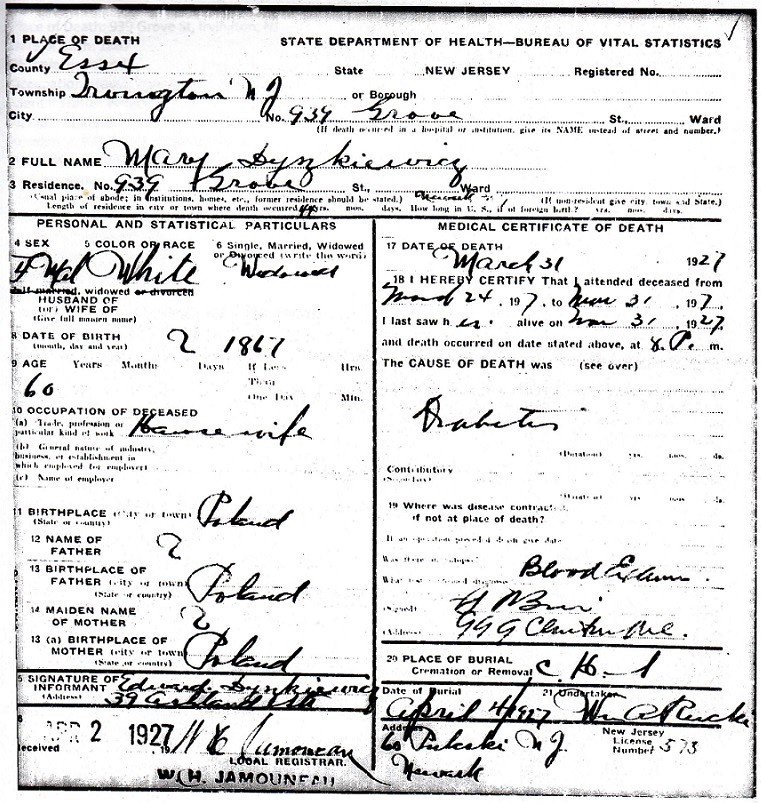 1 PLACE OF DEATH STATE DEPARTMENT OF HEALTH—BUREAU OF VITAL STATISTICS
County Essex State NEW JERSEY Registered No.
Township Irvington N J or Borough
City No. 939 Grove St., Ward
(If death occurred in a hospital or institution, give its NAME instead of street and number.)
2 FULL NAME Mary Dyszkiewicz
3 Residence. No. 939 Grove St., Ward
(Usual place of abode; in institutions, homes, etc., former residence should be stated.) (If non-resident give city, town and State.)
Length of residence in city or town where death occurred yrs. mos. days. How long in U. S., if of foreign birth? yrs. mos. days.
PERSONAL AND STATISTICAL PARTICULARS
4 SEX 5 COLOR OR RACE 6 Single, Married, Widowed
or Divorced (write the word)
White Widowed
If married, widowed or divorced
HUSBAND OF
(or) WIFE OF
(Give full maiden name)
8 DATE OF BIRTH ? 1867
(month, day and year)
9 AGE Years Months Days If Less Hrs.
Than
60 One Day Min.
10 OCCUPATION OF DECEASED
(a) Trade, profession or
particular kind of work Housewife
(b) General nature of industry,
business, or establishment in
which employed (or employer)
(c) Name of employer
11 BIRTHPLACE (City or town) Poland
(State or country)
12 NAME OF
FATHER ?
13 BIRTHPLACE OF
FATHER (city or town) Poland
(State or country)
14 MAIDEN NAME
OF MOTHER ?
13 (a) BIRTHPLACE OF
MOTHER (city or town) Poland
(State or country)
5 SIGNATURE OF
INFORMANT Edward Dyszkiewicz
(Address) 39 Ashland
APR 2 1927
Received
LOCAL REGISTRAR.
W. H. JAMOUNEAU
MEDICAL CERTIFICATE OF DEATH
17 DATE OF DEATH
March 31 1927
18 I HEREBY CERTIFY That I attended deceased from
March 24, 1927, to Mar 31, 1927,
I last saw her alive on Mar 31, 1927,
and death occurred on date stated above, at 8 P. m.
The CAUSE OF DEATH was (see over)
Diabetes
(Duration) yrs. mos. ds.
Contributory
(Secondary)
(Duration) yrs. mos. ds.
19 Where was disease contracted,
if not at place of death?
If an operation preceded death give date
Was there an autopsy?
What test confirmed diagnosis Blood Exam.
(Signed)
(Address) 999 Clinton Ave.
20 PLACE OF BURIAL
Cremation or Removal
Date of Burial 21 Undertaker
April 4 1927
Address New Jersey
60 Pulaski N J. License
Number 573
Newark